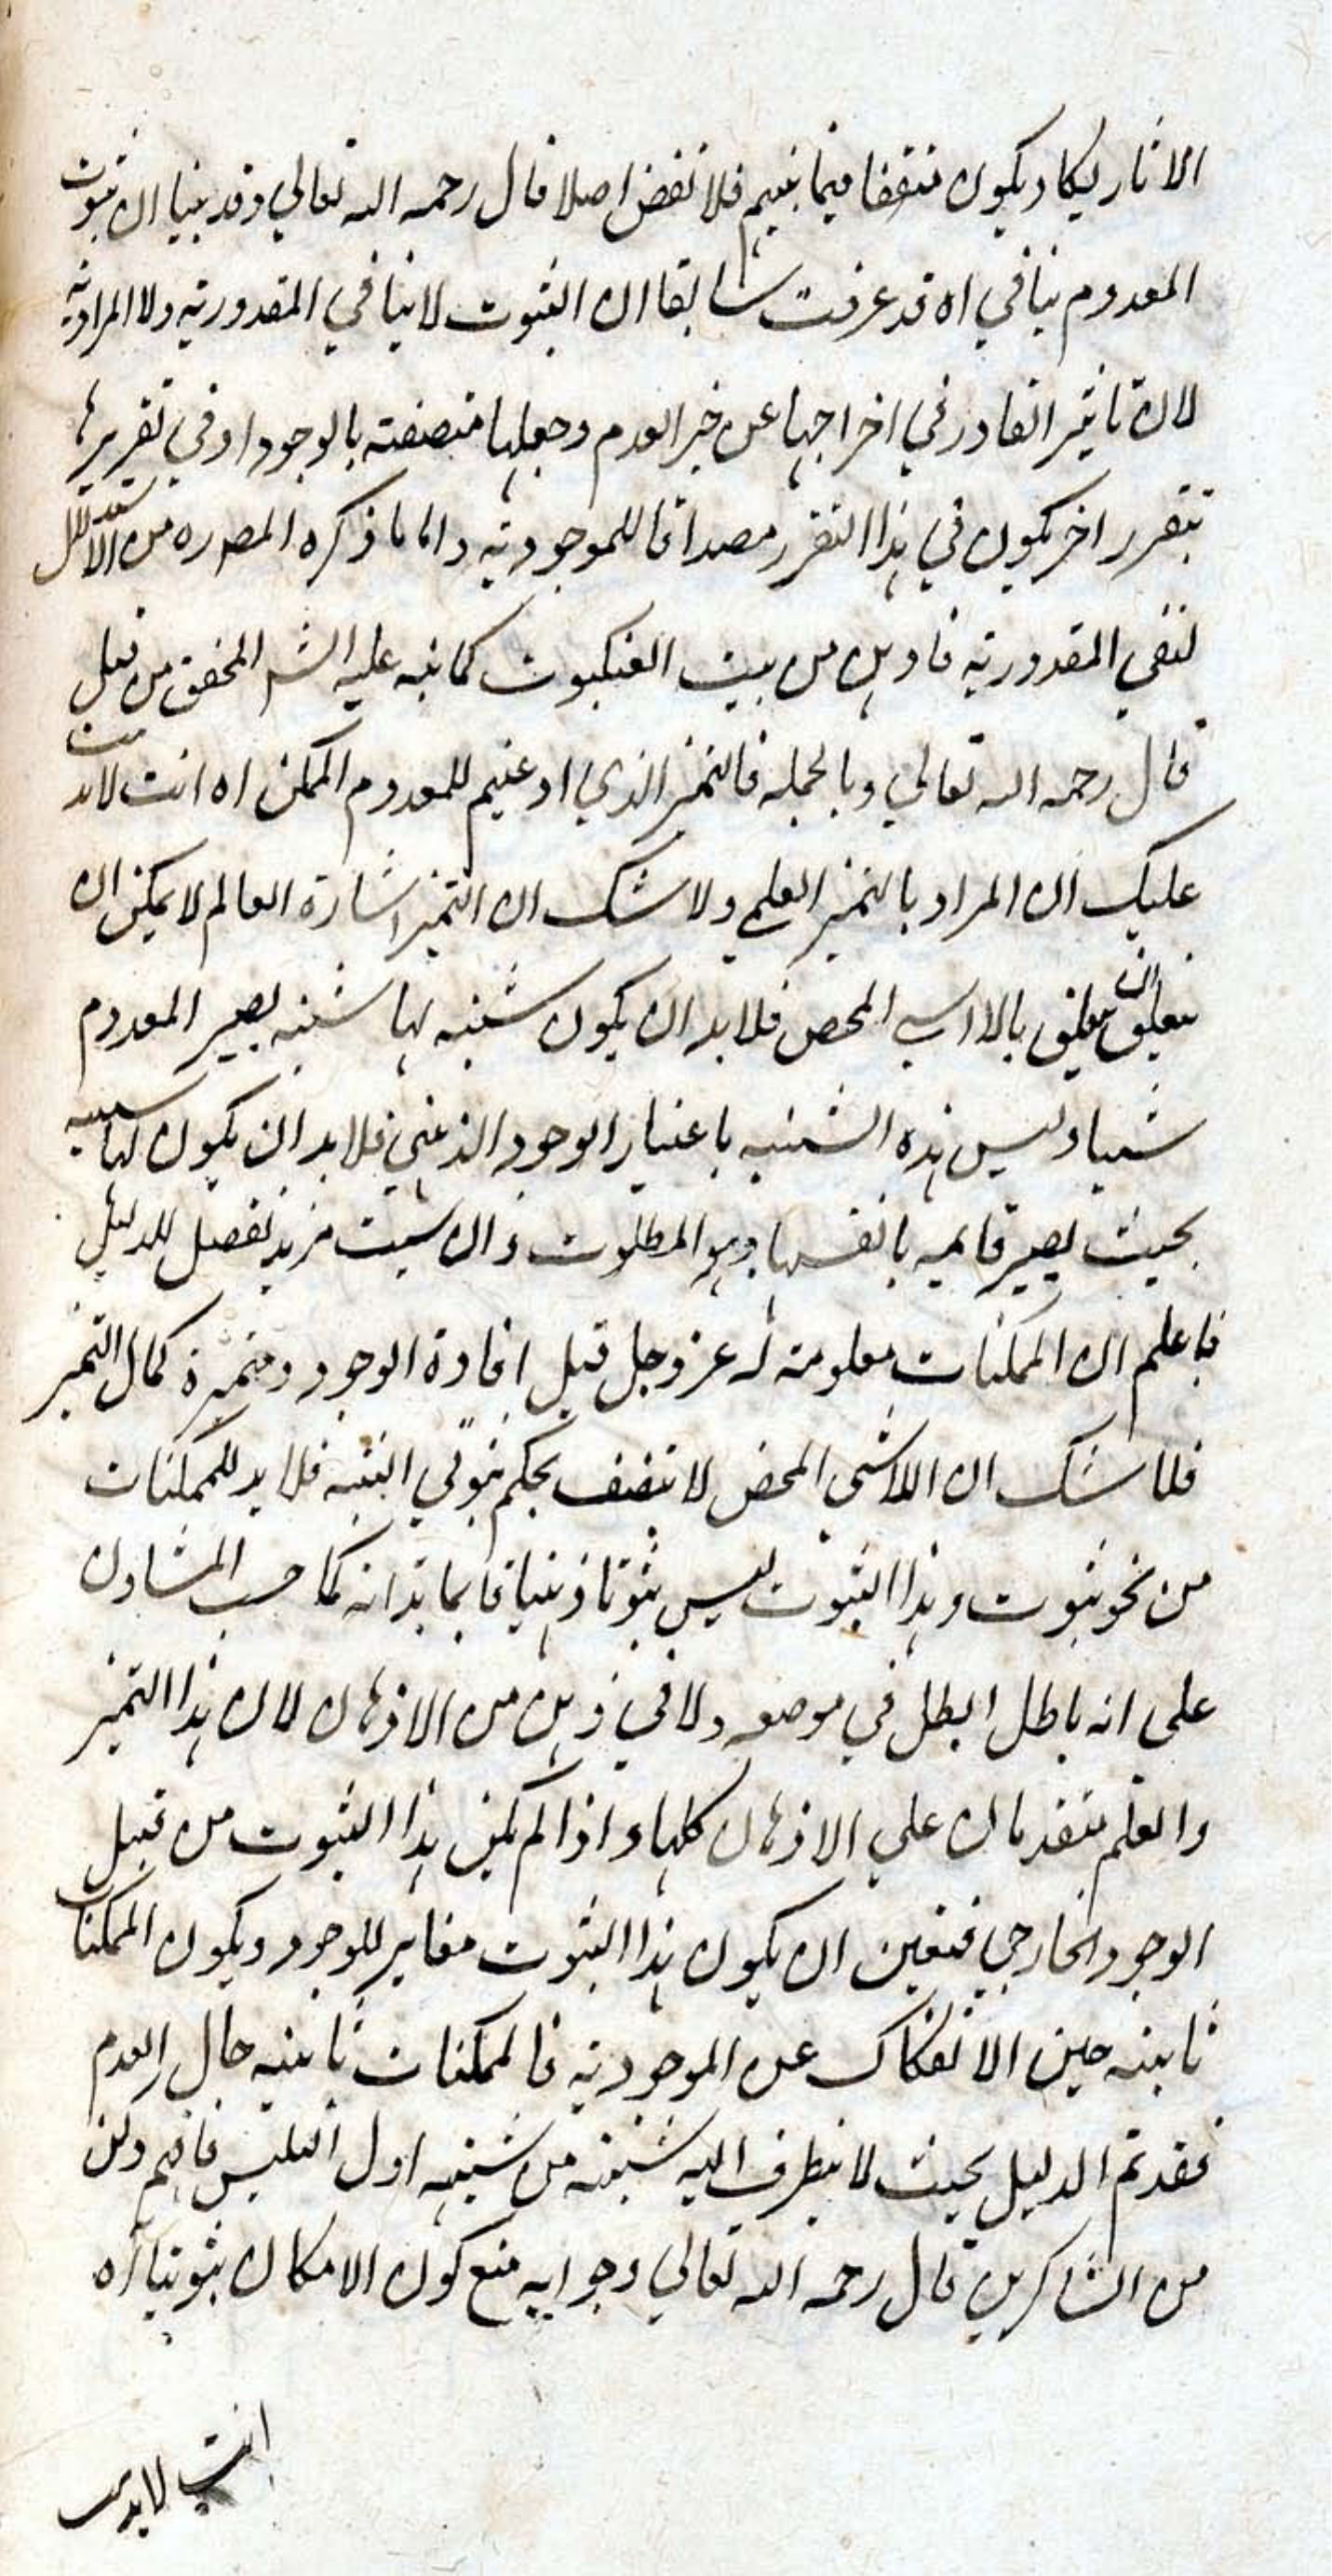 الاثار ليكاد يكون متفقا فيما بينهم فلا نقض اصلا قال رحمه الله تعالي وقد بينا ان ثبوت
المعدوم ينافي اه قد عرفت سابقا ان الثبوت لا ينافي المقدورية ولا المرادية
لان تاثير القادر في اخراجها عن حيز العدم وجعلها متصفة بالوجود او في تقريرها
بتقرر اخر يكون في هذا التقرر مصداقا للموجودية واما ما ذكره المصره من الاستدلال
لنفي المقدورية فاوهن من بيت العنكبوت كما نبه عليه الشـ المحقق من قبل
قال رحمه الله تعالي وبالجملة فالتميز الذي ادعيتم للمعدوم الممكن اه انت لا يذهبت
عليك ان المراد بالتميز العلمي ولا شك ان التميز اشارة العالم لا يمكن ان
يتعلق بالاراسي المحض فلا بد ان يكون شيئية لها شيئية يصير المعدوم
شيئا وليس هذه الشيئية باعتبار الوجود الذهني فلا بد ان يكون لها شيئية
بحيث يصير قايمة بانفسها وهو المطلوب وان شئت مزيد تفصيل للدليل
فاعلم ان الممكنات معلومة له عز وجل قبل افادة الوجود ومتميزة كمال التميز
فلا شك ان اللاشي المحض لا تتصف بحكم ثبوتي البتة فلا بد للممكنات
من نحو ثبوت وهذا الثبوت ليس ثبوتا ذهنيا قايما بذاته كما حسب المشاؤن
علي انه باطل ابطل في موضعه ولا في ذهن من الاذهان لان هذا التميز
والعلم متقدمان علي الاذهان كلها واذا لم يكن هذا الثبوت من قبيل
الوجود الخارجي فتعين ان يكون هذا الثبوت مغاير للوجود ويكون الممكنات
ثابتة حين الانفكاك عن الموجودية فالممكنات ثابتة حال العدم
فقد تم الدليل بحيث لا يتطرق اليه شبهة من شبه اول التلبيس فافهم وكن
من الشاكرين قال رحمه الله تعالي وجوابه منع كون الامكان ثبوتيا اه
انت لا يذهب